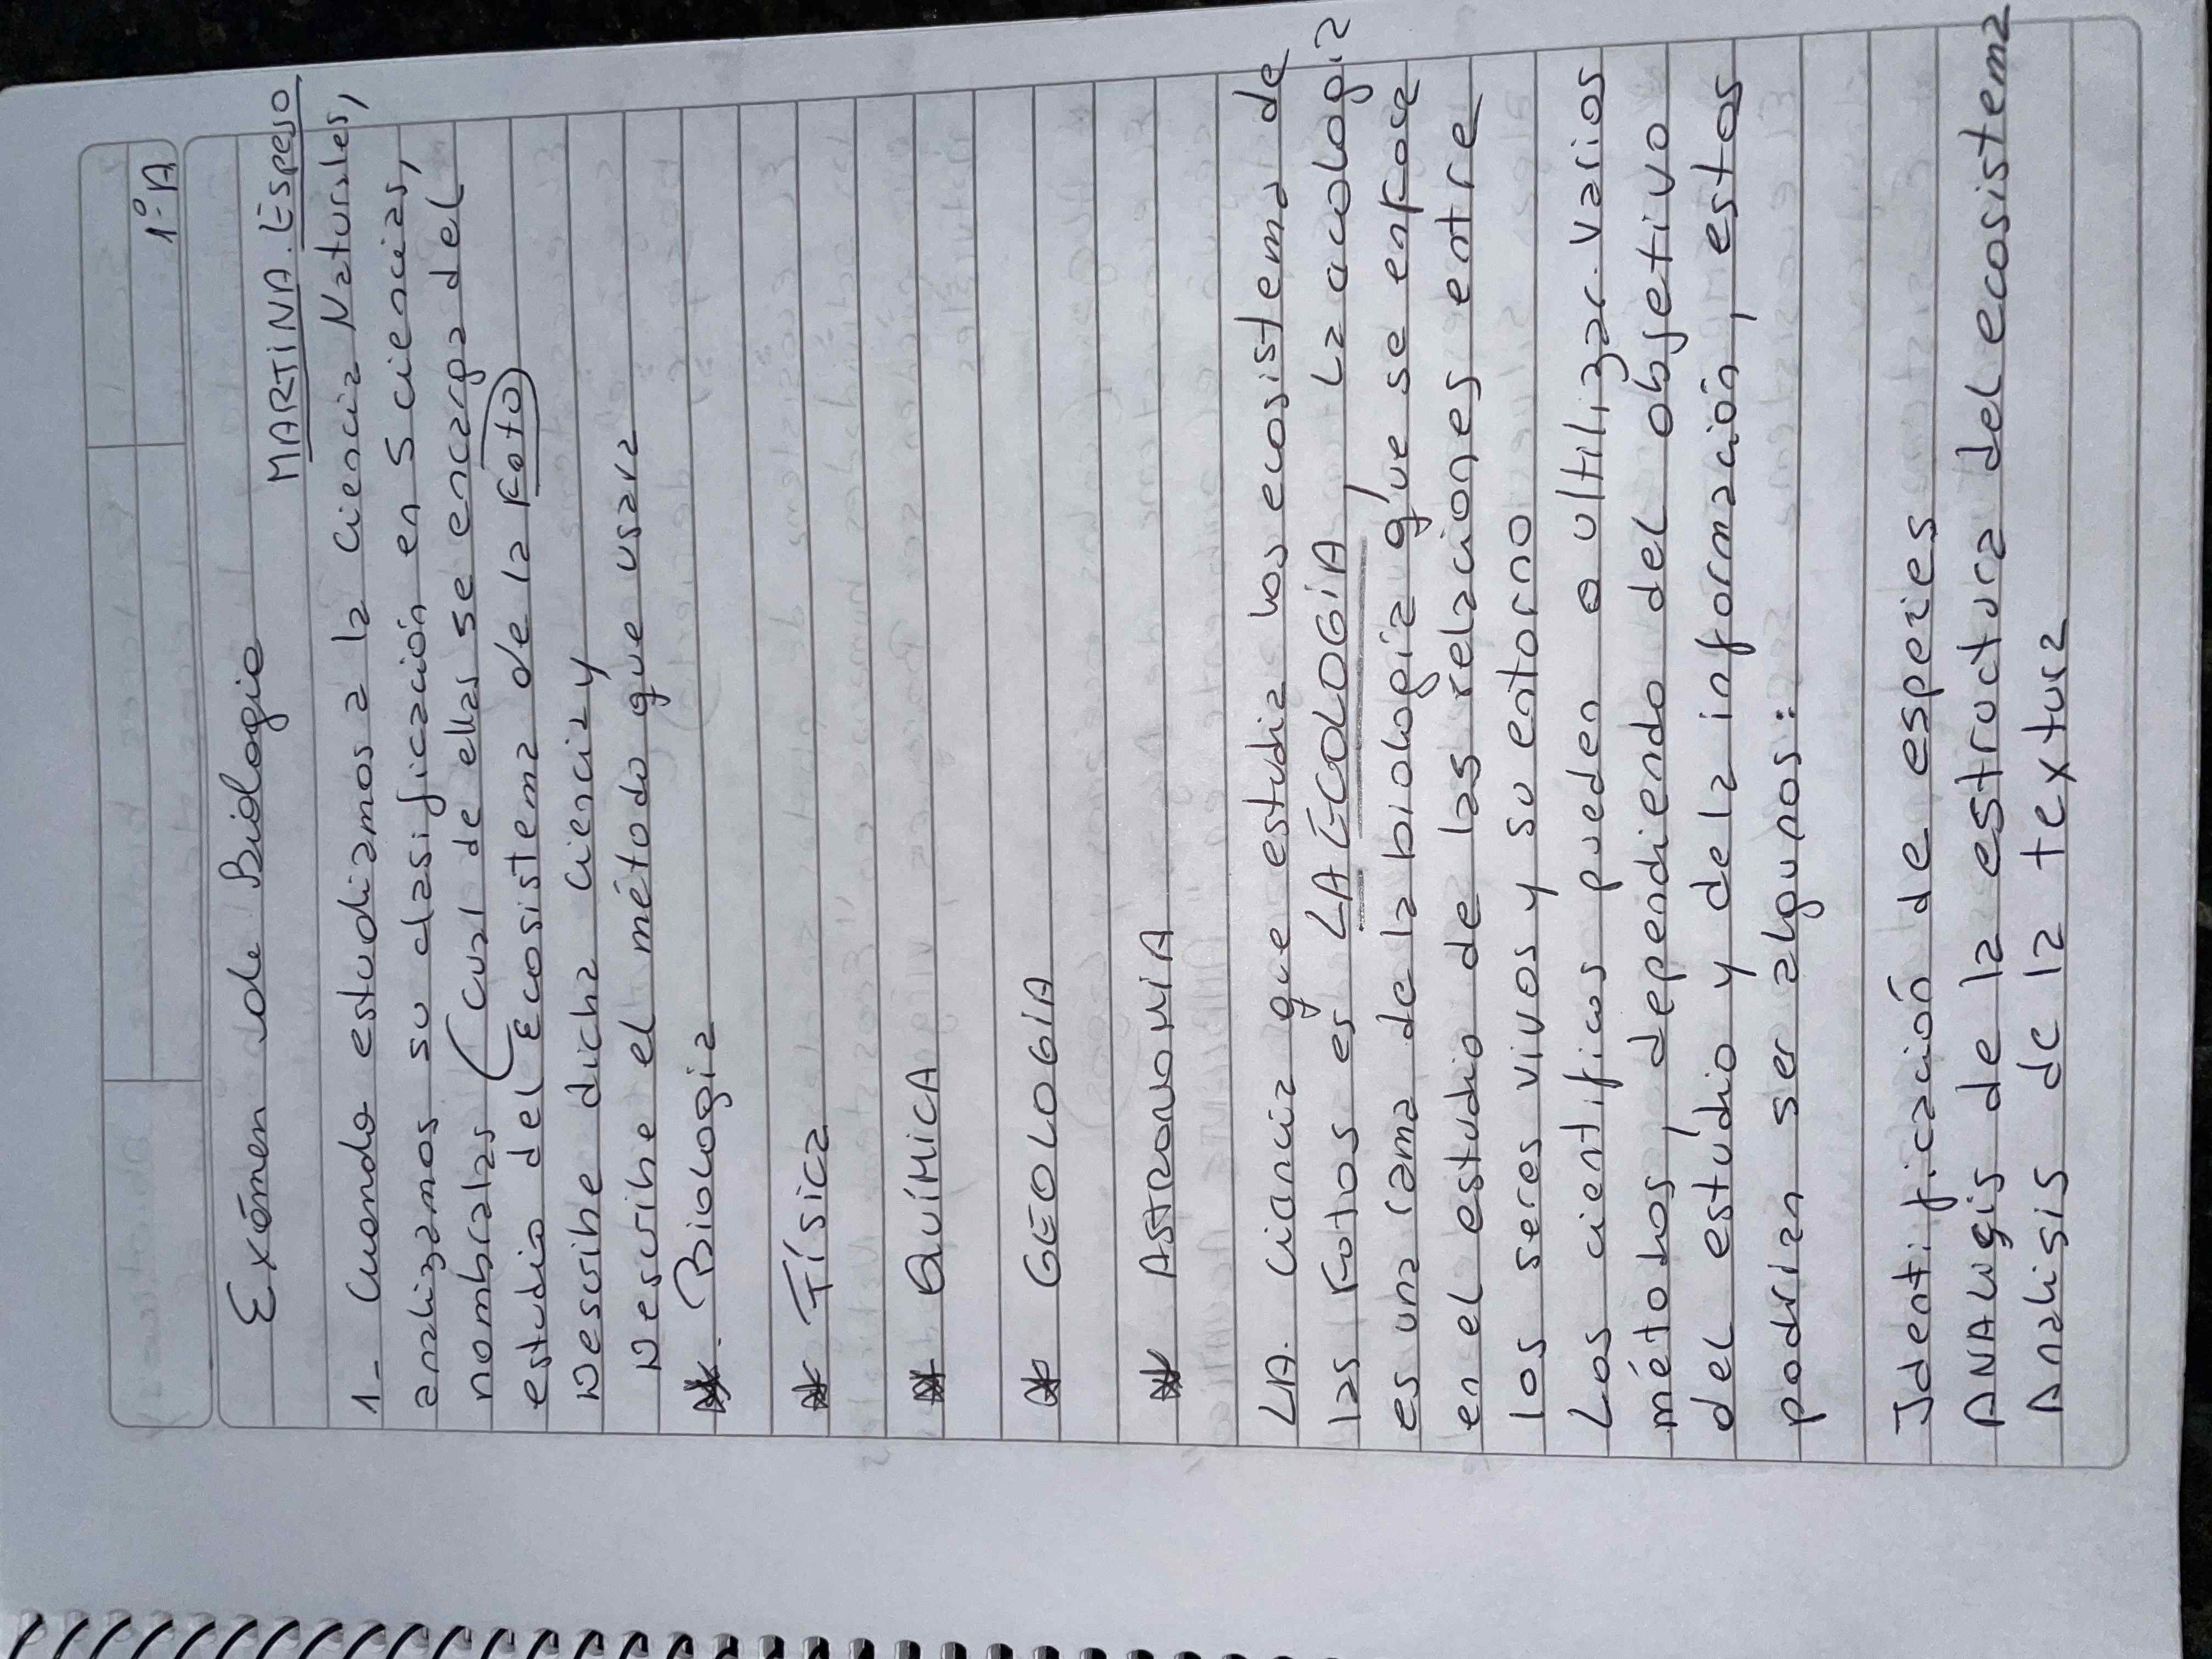 1º A
Exámen de Biologia
MARTINA. Espeso
1- Cuando estudiamos a la ciencia Naturales,
analizamos su clasificación en 5 ciencias,
nombralas (cual de ellas se encarga del
estudio del Ecosistema de la Foto)
Describe dicha ciencia y
Describe el método que usara
. Biologia
Física
QUÍMICA
GEOLOGIA
ASTRONOMIA
LA. ciancia que estudia los ecosistema de
las Fotos es LA ÉCOLOGIA. La acologia
es una rama de la biologia que se enfoca
en el estudio de las relaciones entre
los seres vivos y su entorno
Los cientificos pueden o ultilizar varios
métohos, dependiendo del objetivo
del estúdio y de la información, estos
podrian ser algunos:
Identificación de especies
ANALisis de la estructura del ecosistema
Analisis de la textura